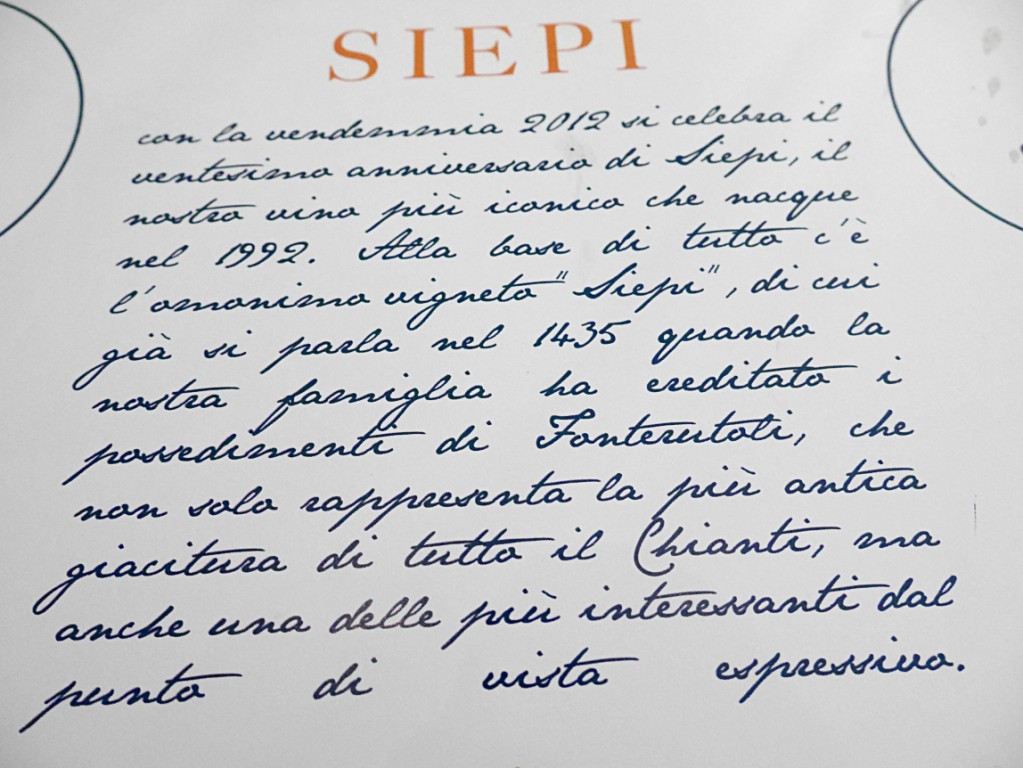 SIEPI
con la vendemmia 2012 si celebra il
ventesimo anniversario di Siepi, il
nostro vino più iconico che nacque
nel 1992. Alla base di tutto c'è
l'omonimo vigneto "Siepi", di cui
già si parla nel 1435 quando la
nostra famiglia ha ereditato i
possedimenti di Fonterutoli, che
non solo rappresenta la più antica
giacitura di tutto il Chianti, ma
anche una delle più interessanti dal
punto di vista espressivo.